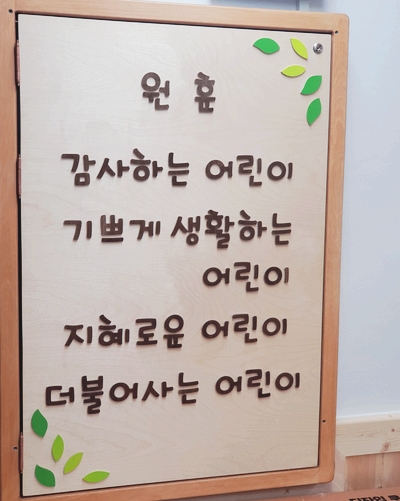 원 훞
감사하는 어린이
기쁘게 생활하는
어린이
지혜로운 어린이
더불어사는 어린이